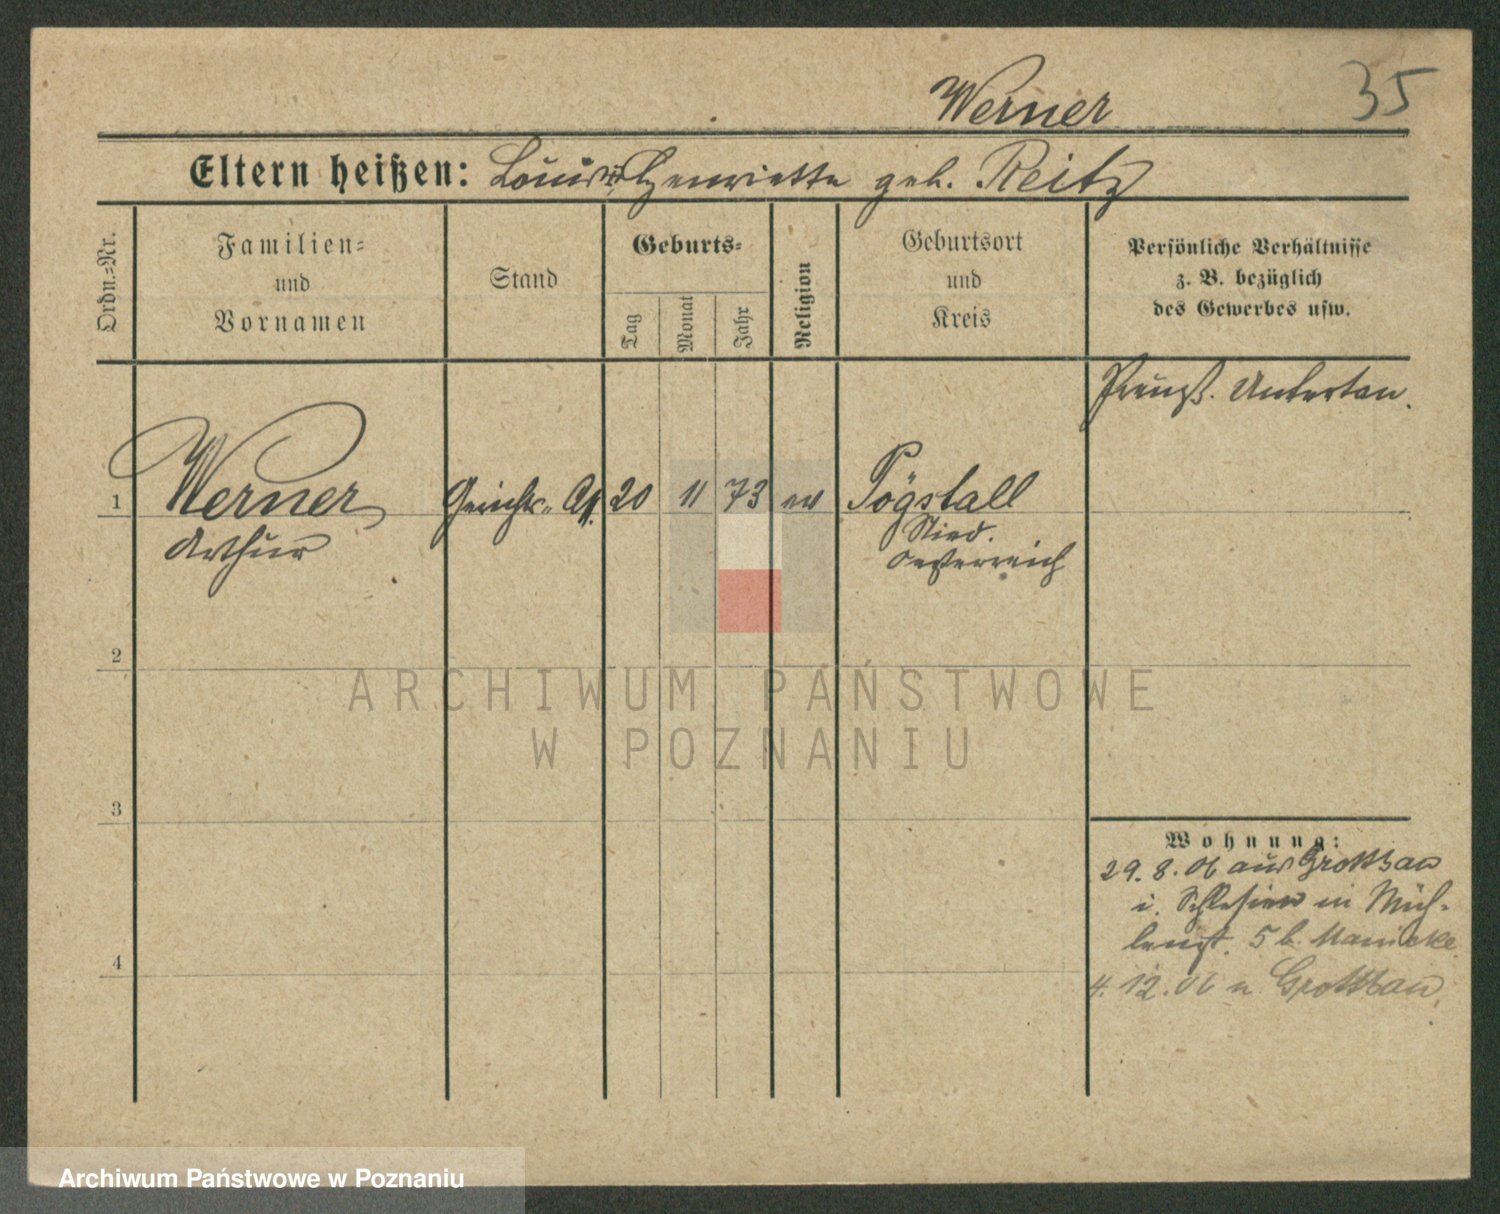 Werner 35
Eltern heißen: Louis u. Henriette geb. Reitz
Ordn.-Nr.
Familien-
und
Vornamen
Stand
Geburts-
Tag
Monat
Jahr
Religion
Geburtsort
und
Kreis
Persönliche Verhältnisse
z. B. bezüglich
des Gewerbes usw.
Preuß. Untertan.
1 Werner Gerichts- Ass. 20 11 73 ev Pögstall
Arthur
Nied.
Oesterreich
2
3
4
ARCHIWUM PAŃSTWOWE
W POZNANIU
Wohnung:
29.8.06 aus Grottkau
i. Schlesien in Müh-
lenst. 5 b.
4.12.06 n. Grottkau.
Archiwum Państwowe w Poznaniu